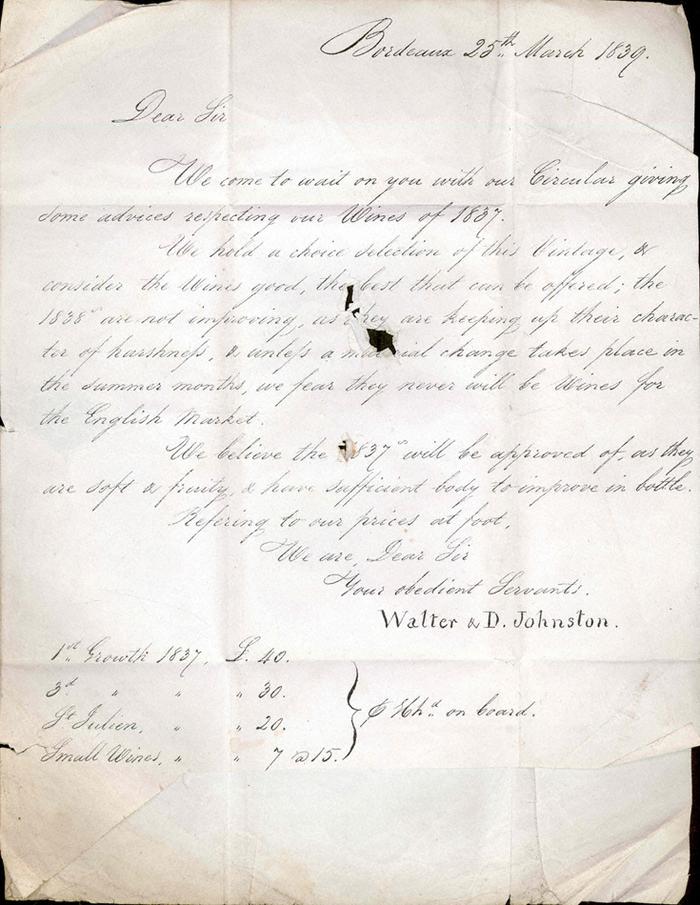 Bordeaux 25th March 1839.
Dear Sir
We come to wait on you with our Circular giving
some advices respecting our Wines of 1837.
We hold a choice selection of this Vintage, &
consider the Wines good, the best that can be offered; the
1838s are not improving, as they are keeping up their charac-
ter of harshness, & unless a material change takes place in
the summer months, we fear they never will be Wines for
the English Market.
We believe the 1837s will be approved of, as they
are soft & fruity, & have sufficient body to improve in bottle.
Refering to our prices at foot,
We are, Dear Sir
Your obedient Servants.
Walter & D. Johnston.
1st Growth 1837, £. 40.
3d " " " 30.
St Julien, " " 20.
Small Wines, " " 7 @ 15.
℔ Hhd on board.